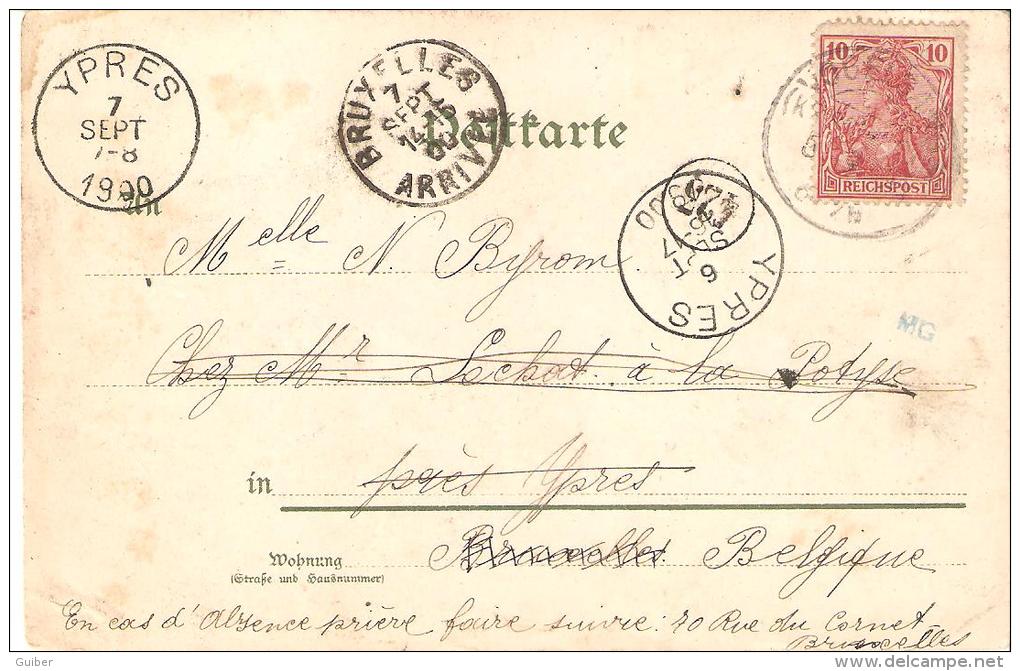 YPRES
7
SEPT
7-8
1900
BRUXELLES
7
SEPT
ARRIVÉE
10 10
REICHSPOST
Postkarte
YPRES
6
An
Melle N. Byrom.
MG
Chez Mr Lochat à la Potyse
in près Ypres
Wohnung
(Straße und Hausnummer)
Bruxelles Belgique
En cas d'Absence prière faire suivre: 70 Rue du Cornet
Bruxelles
Guiber
http://www.delcampe.net